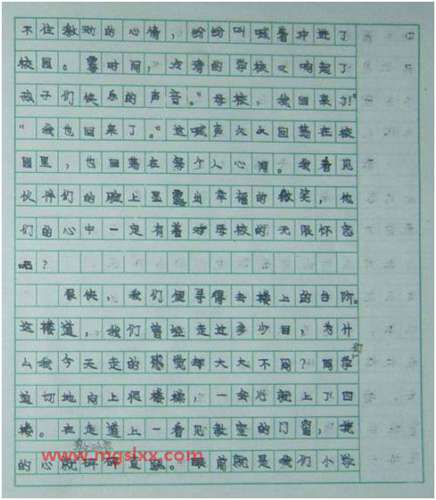 不住激动的心情，纷纷叫喊着冲进了
校园。霎时间，沉清的学校又响起了
孩子们快乐的声音。“母校，我回来了！”
“我也回来了。”这喊声久久回荡在校
园里，也回荡在每个人心间。我看见
伙伴们的脸上显露出幸福的微笑，他
们的心中一定有着对母校的无限怀念
吧？
很快，我们便寻得去楼上的台阶。
这楼道，我们曾经走过多少回，为什
么我今天走的感觉却大大不同？同学
迫切地向上爬楼梯，一会儿就上了四
楼。在走道上一看见教室的门窗，我
的心就怦怦直跳。眼前就是我们小学
www.mgslxx.com